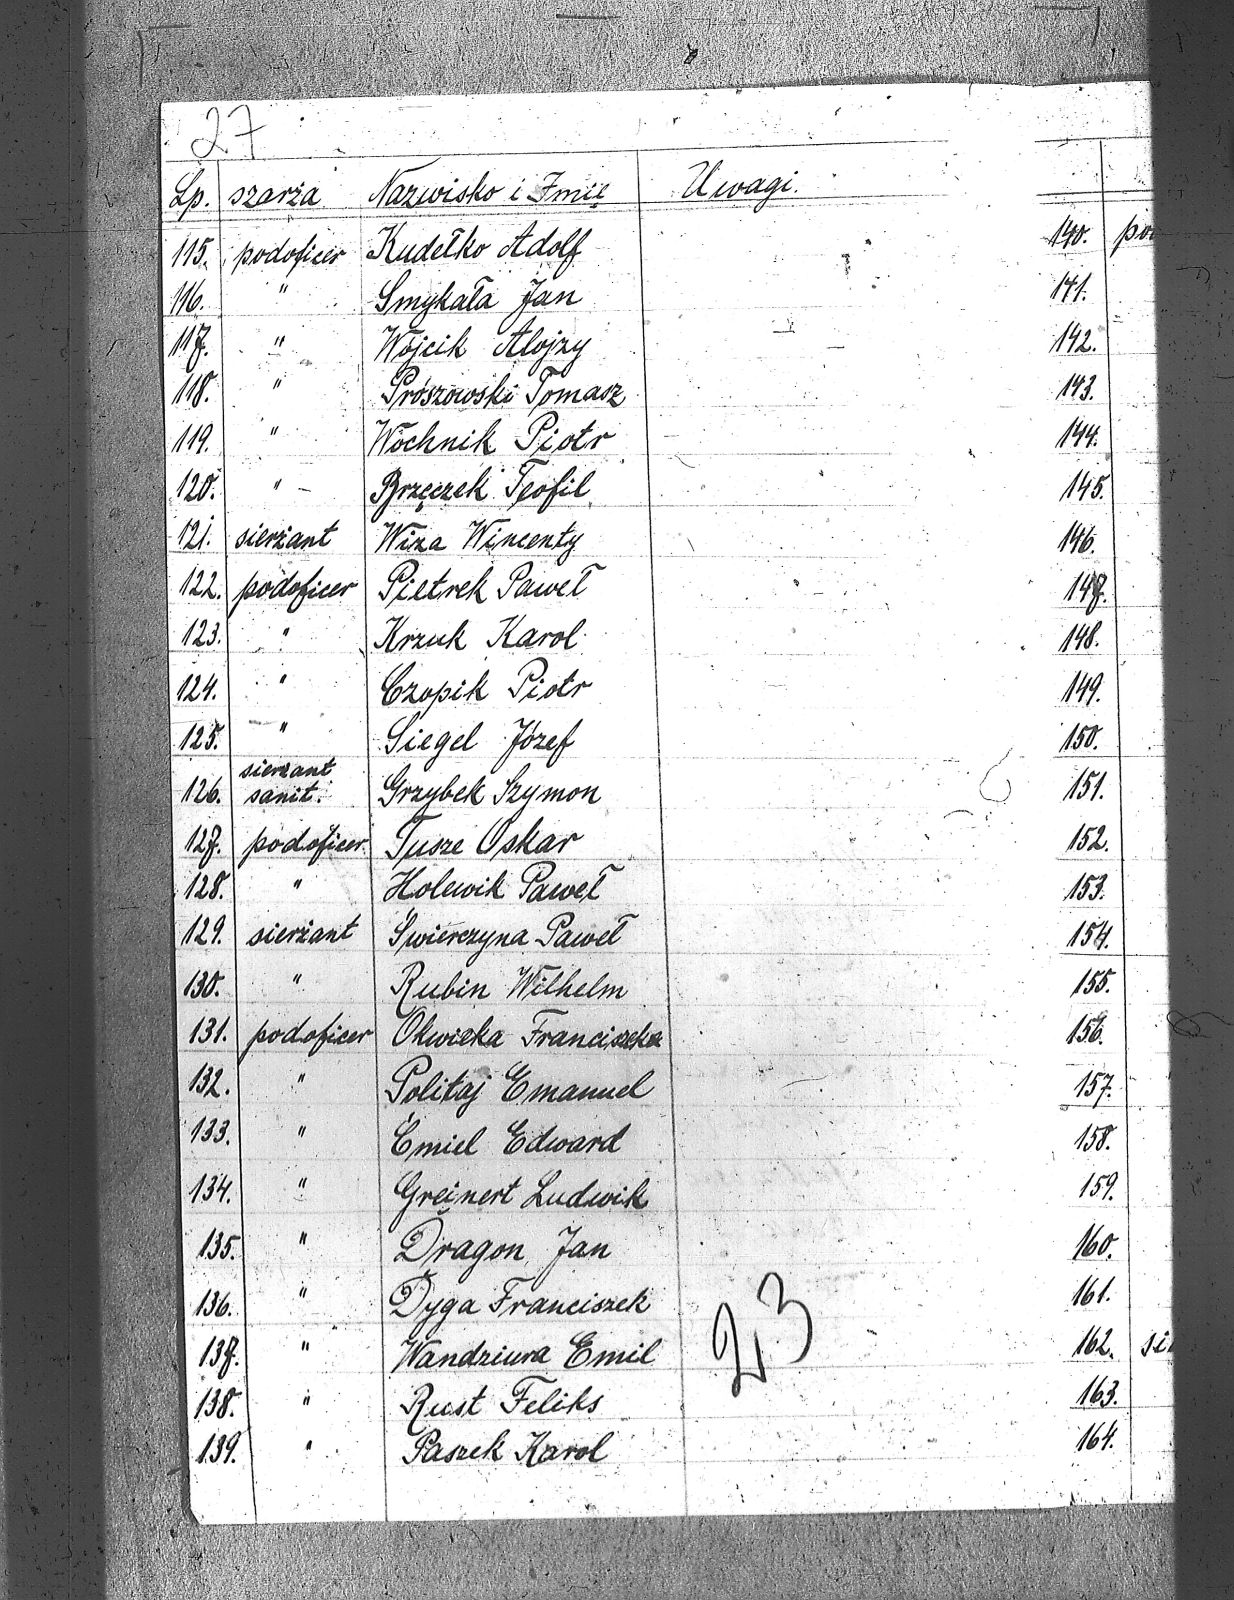 27
Lp. szarża Nazwisko i Imię Uwagi.
115. podoficer Kudełko Adolf
116. " Smykała Jan
117. " Wójcik Alojzy
118. " Prószowski Tomasz
119. " Wochnik Piotr
120. " Brzęczek Teofil
121. sierżant Wiza Wincenty
122. podoficer Pietrek Paweł
123. " Krzuk Karol
124. " Czopik Piotr
125. " Siegel Józef
126. sierżant sanit. Grzybek Szymon
127. podoficer Tusze Oskar
128. " Holewik Paweł
129. sierżant Świerczyna Paweł
130. " Rubin Wilhelm
131. podoficer Franciszek
132. " Politaj Emanuel
133. " Ćmiel Edward
134. " Greinert Ludwik
135. " Dragon Jan
136. " Dyga Franciszek
137. " Wandziura Emil
138. " Rust Feliks
139. " Paszek Karol
23
140.
141.
142.
143.
144.
145.
146.
147.
148.
149.
150.
151.
152.
153.
154.
155.
156.
157.
158.
159.
160.
161.
162.
163.
164.